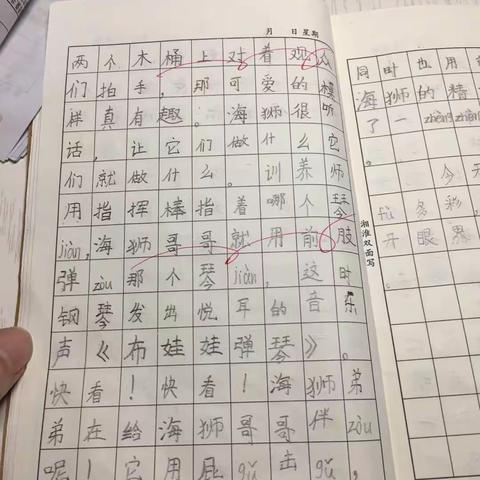 月 日 星期
两个木桶上对着观众
们拍手，那可爱的模
样真有趣。海狮很听
话，让它们做什么它
们就做什么。训养师
用指挥棒指着哪个琴
jiàn，海狮哥哥就用前肢
弹zòu那个琴jiàn，这时
钢琴发出悦耳的音乐
声《布娃娃弹琴》。
快看！快看！海狮弟
弟在给海狮哥哥伴zòu
呢！它用屁gǔ击gǔ，
湘淮双面写
同时也用
海狮的精
了一zhèngzhèn
。
今天
fù多彩，
开眼界